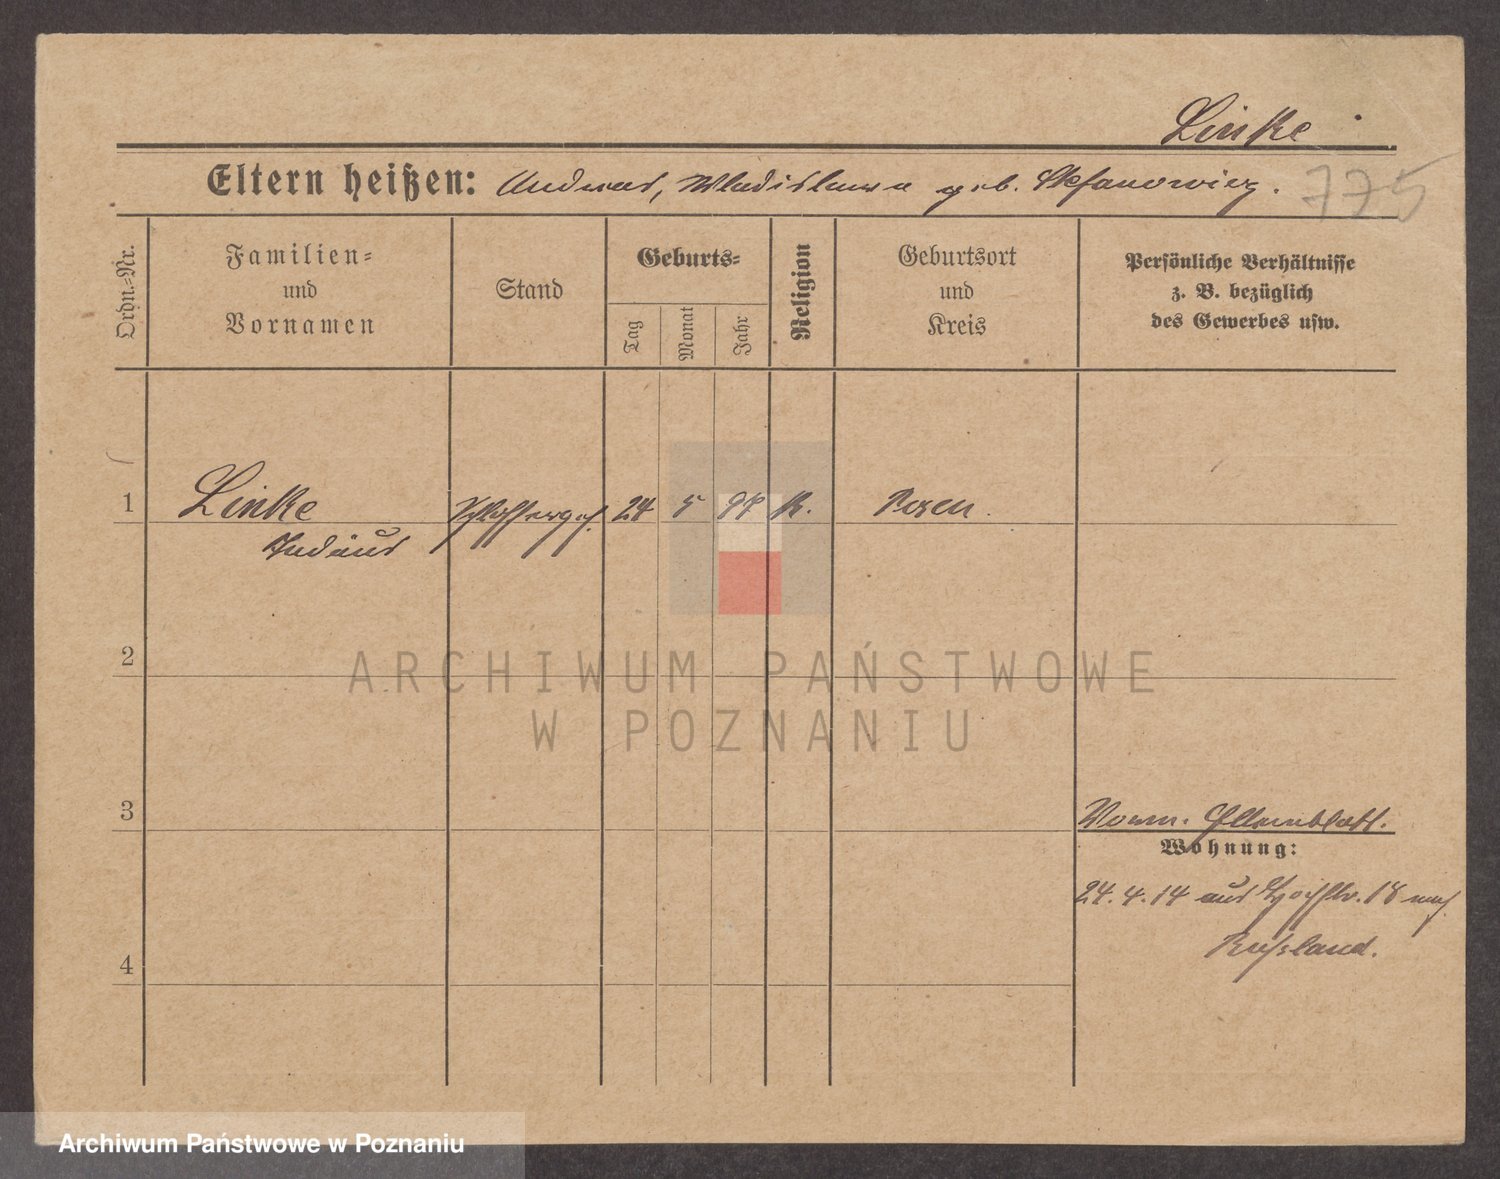 Linke
Eltern heißen: Andreas, Wladislawa geb. Stefanowicz.
775
Ordn.=Nr.
Familien=
und
Vornamen
Stand
Geburts=
Tag
Monat
Jahr
Religion
Geburtsort
und
Kreis
Persönliche Verhältnisse
z. B. bezüglich
des Gewerbes usw.
1
Linke
Schlosserges. 24 5 94 K. Posen
2
ARCHIWUM PAŃSTWOWE
W POZNANIU
3
Elternblatt.
Wohnung:
24. 4. 14 aus 18 nach
Rußland.
4
Archiwum Państwowe w Poznaniu